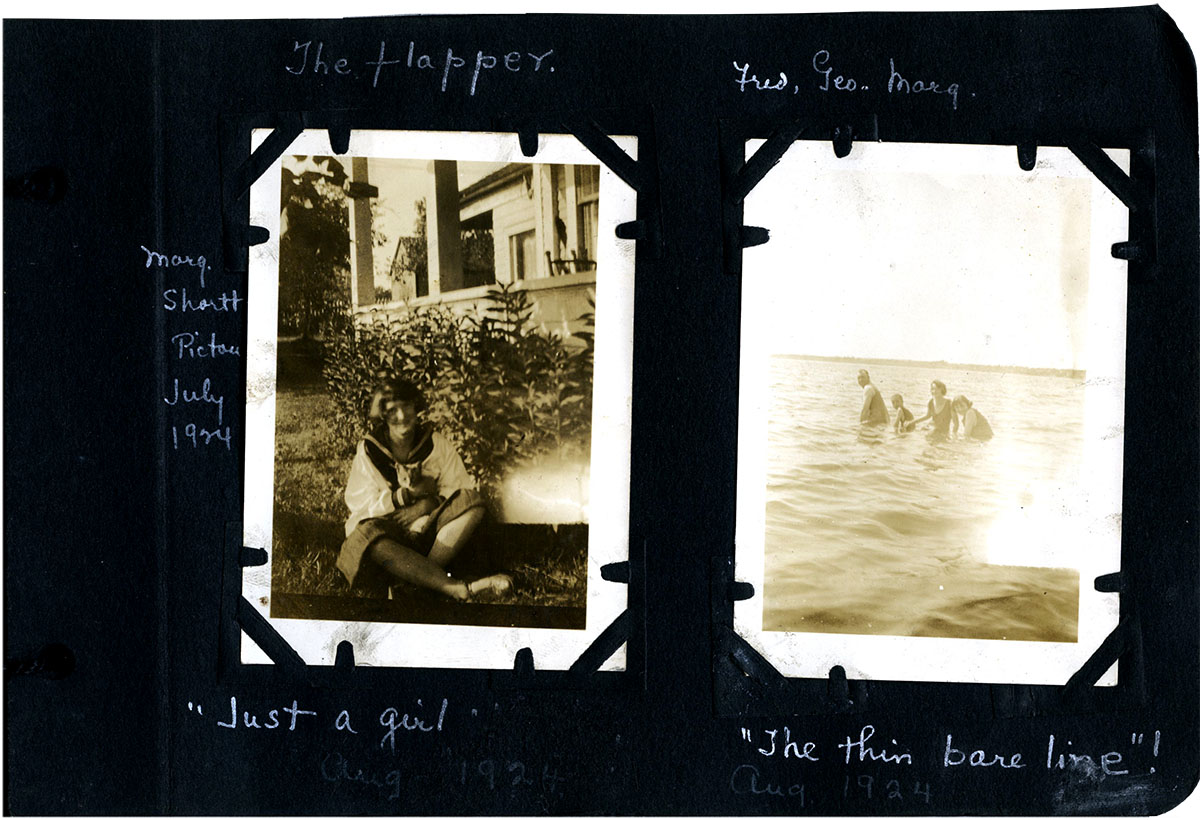 The flapper.
Fred, Geo. Marg.
Marg.
Shortt
Picton
July
1924
"Just a girl"
Aug - 1924
"The thin bare line"!
Aug. 1924